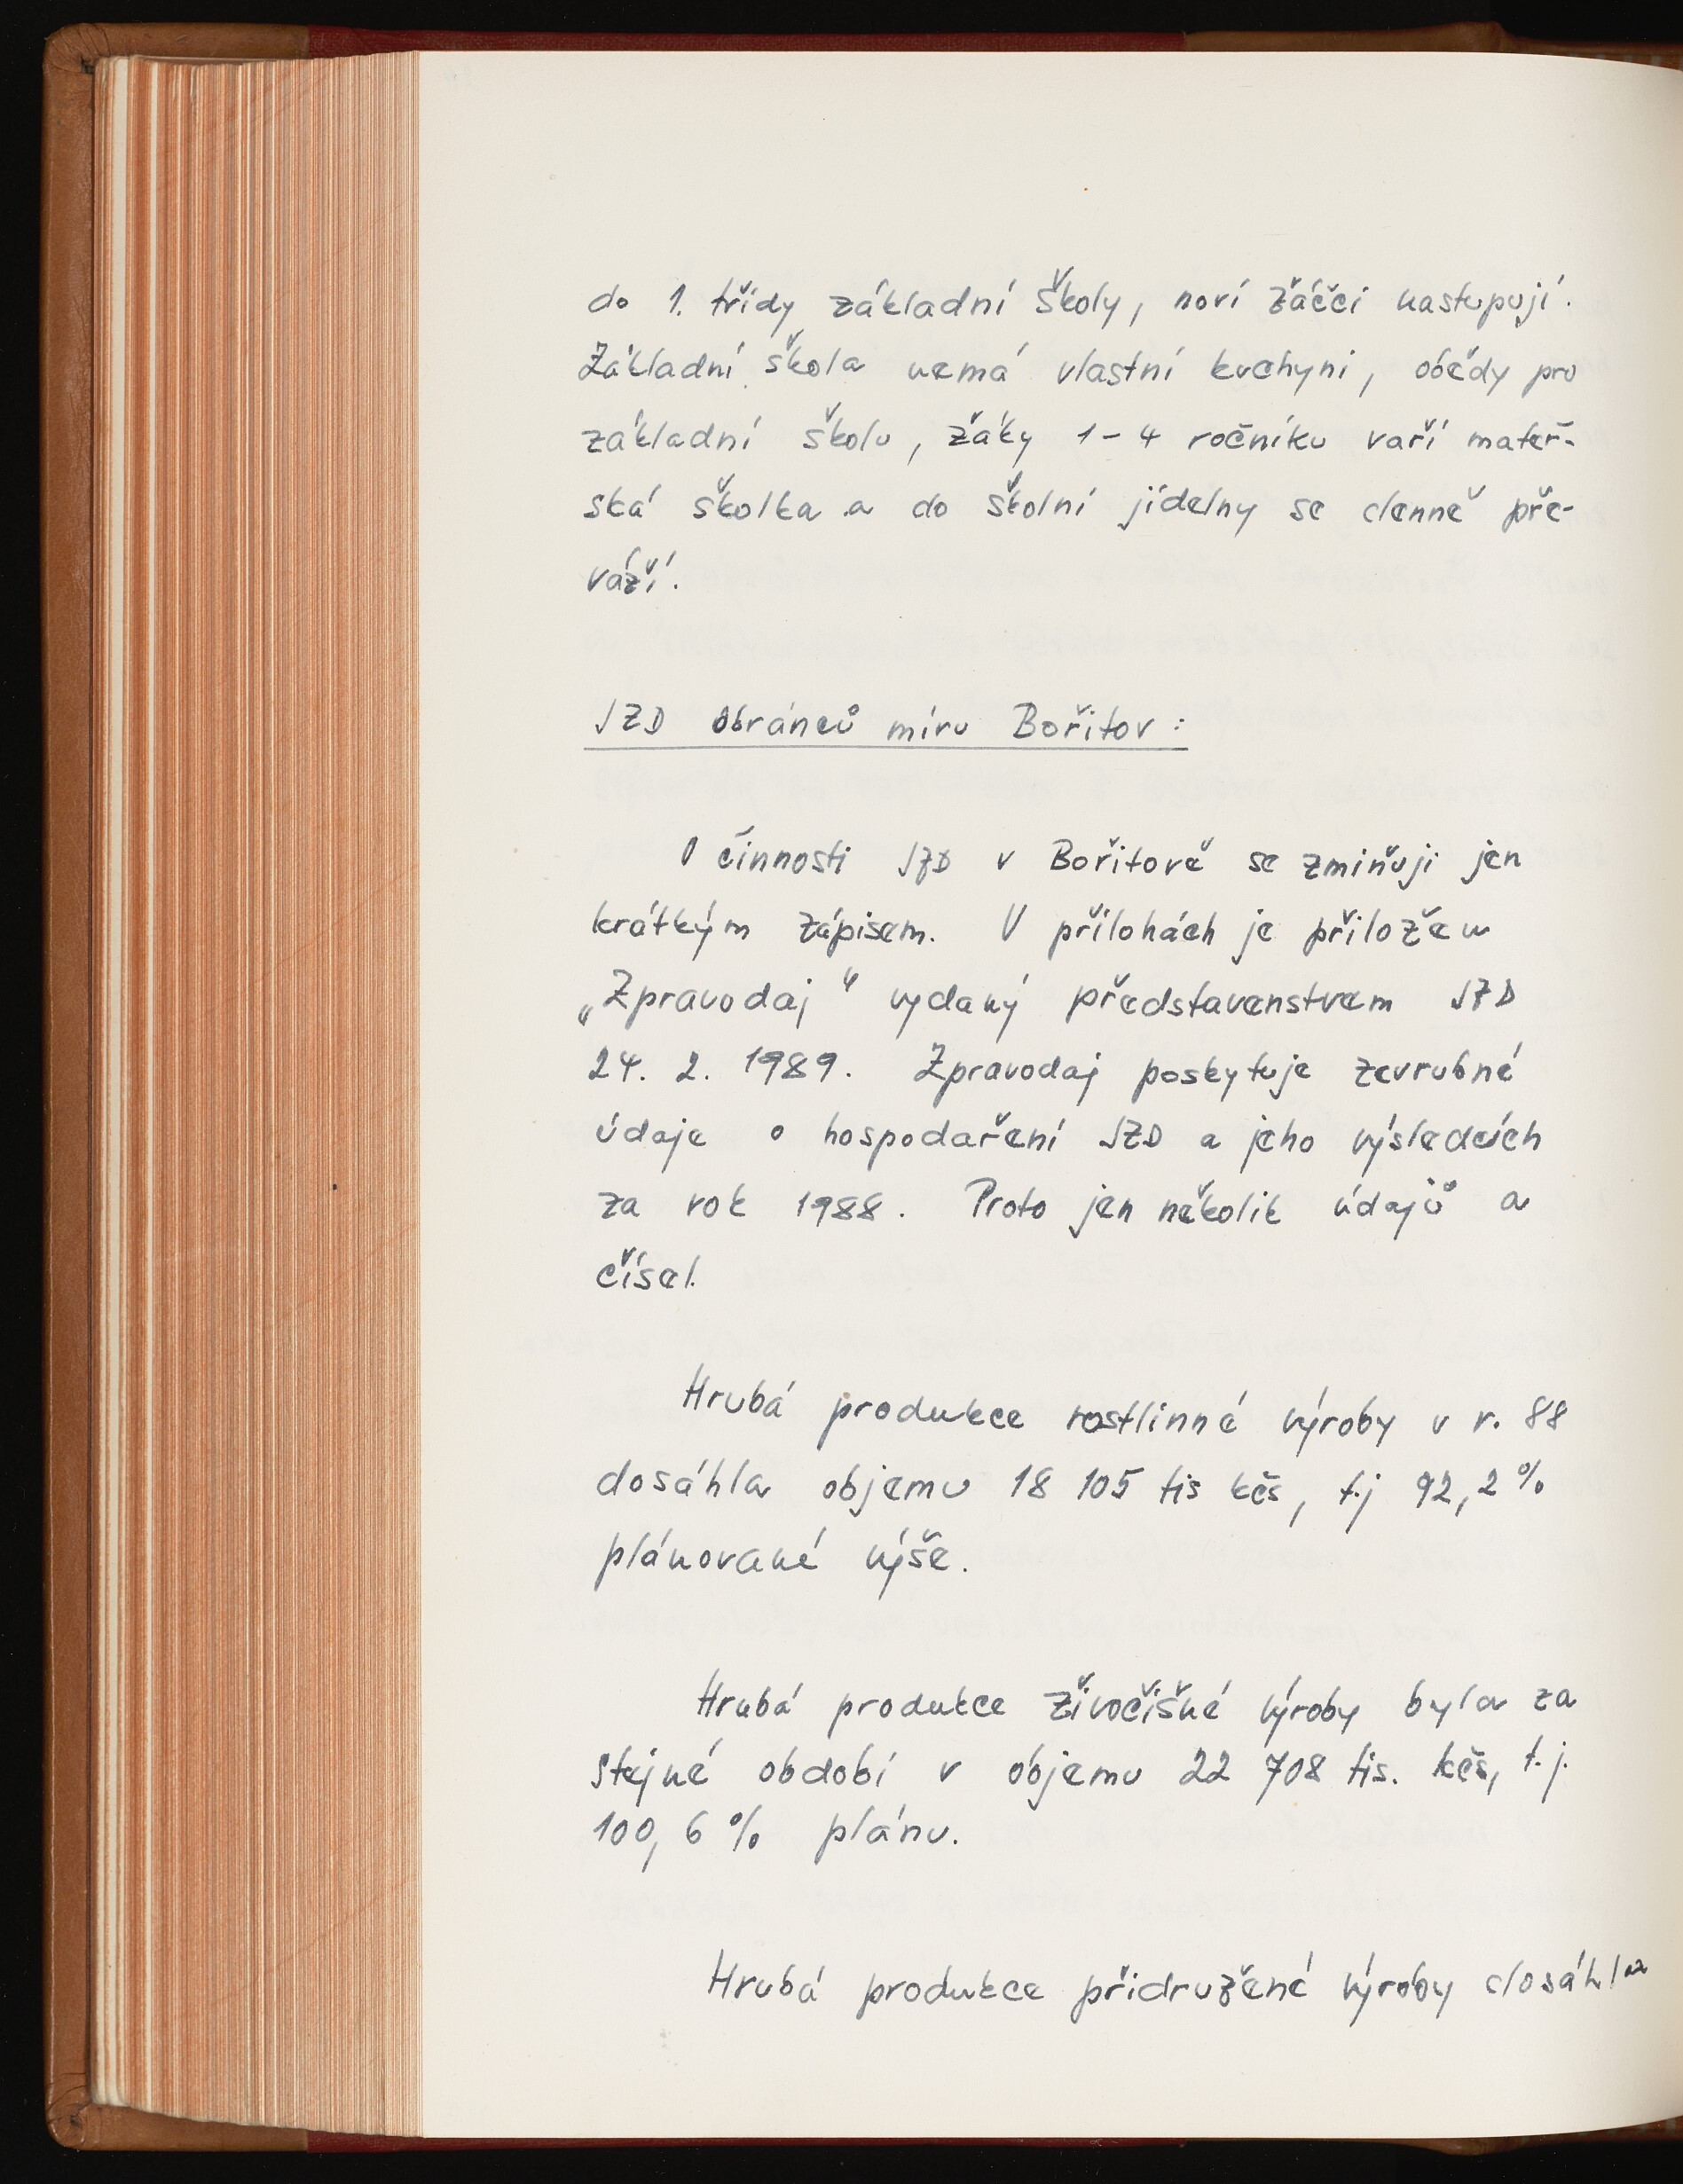 do 1. třídy základní školy, noví žáčci nastupují.
Základní škola nemá vlastní kuchyni, obědy pro
základní školu, žáky 1-4 ročníku vaří mateř-
ská školka a do školní jídelny se denně pře-
váží.
JZD Obránců míru Bořitov:
O činnosti JZD v Bořitově se zmiňuji jen
krátkým zápisem. V přílohách je přiložen
„Zpravodaj" vydaný představenstvem JZD
24. 2. 1989. Zpravodaj poskytuje zevrubné
údaje o hospodaření JZD a jeho výsledcích
za rok 1988. Proto jen několik údajů a
čísel.
Hrubá produkce rostlinné výroby v r. 88
dosáhla objemu 18 105 tis kčs, t.j 92,2 %
plánované výše.
Hrubá produkce živočišné výroby byla za
stejné období v objemu 22 708 tis. kčs, t.j.
100,6 % plánu.
Hrubá produkce přidružené výroby dosáhla